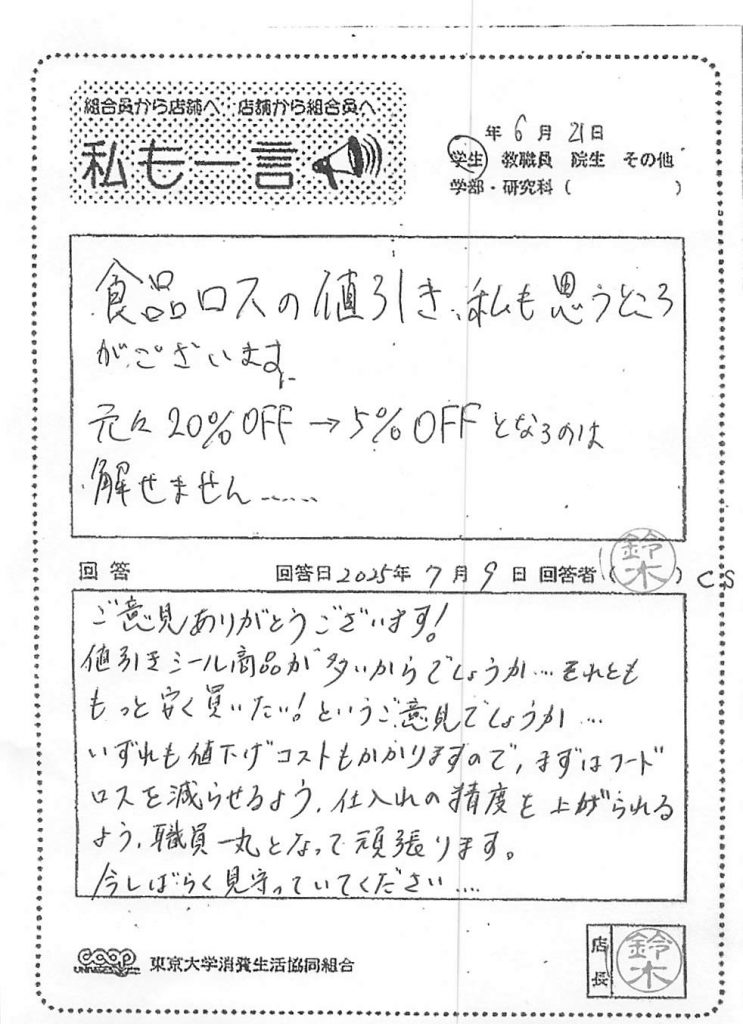 組合員から店舗へ 店舗から組合員へ
私も一言
年 6月 21日
学生 教職員 院生 その他
学部・研究科( )
食品ロスの値引き、私も思うところ
がございます。
元々20%OFF→5%OFFとなるのは
解せません……
回答 回答日2025年7月9日 回答者(鈴木)CS
ご意見ありがとうございます!
値引きシール商品が多いからでしょうか…それとも
もっと安く買いたい!というご意見でしょうか…
いずれも値下げコストもかかりますので、まずはフード
ロスを減らせるよう、仕入れの精度を上げられる
よう、職員一丸となって頑張ります。
今しばらく見守っていてください….
coop 東京大学消費生活協同組合
店長 鈴木